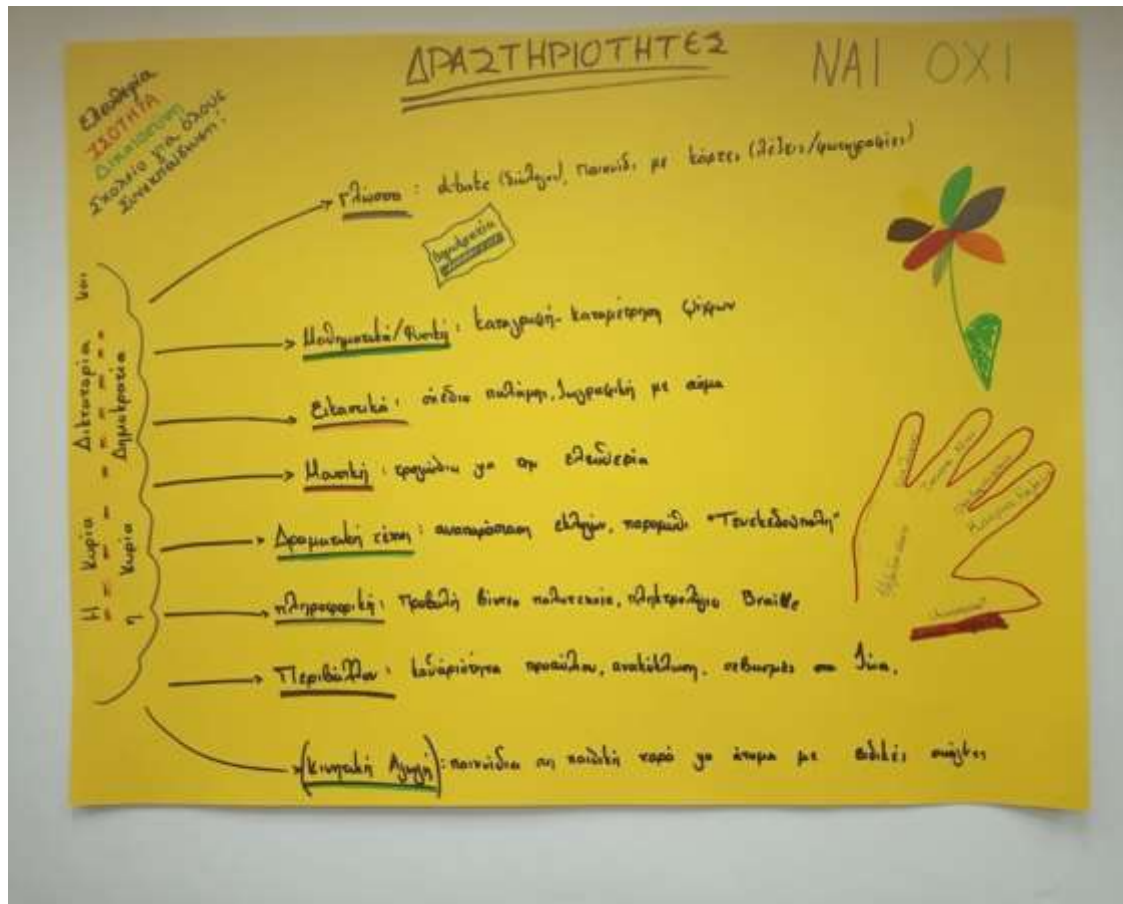 ΔΡΑΣΤΗΡΙΟΤΗΤΕΣ
ΝΑΙ ΟΧΙ
Ελευθερία
ΙΣΟΤΗΤΑ
Δικαιοσύνη
Σχολείο για όλους
Συνεκπαίδευση!
Η Κυρία Δικτατορία και
η κυρία Δημοκρατία
Γλώσσα: debate (διάλογοι), παιχνίδι με κάρτες (λέξεις/φωτογραφίες)
Δημοκρατία
Μαθηματικά/Φυσική: καταγραφή- καταμέτρηση ψήφων
Εικαστικά: σχέδιο παλάμης, ζωγραφική με σώμα
Μουσική: τραγούδια για την ελευθερία
Δραματική τέχνη: αναπαράσταση εκλογών, παραμύθι "Τενεκεδούπολη"
πληροφορική: προβολή βίντεο πολυτεχνείο, πληκτρολόγιο Braille
Περιβάλλον: καθαριότητα προαυλίου, ανακύκλωση, σεβασμός στα ζώα.
(κινητική Αγωγή): παιχνίδια στη παιδική χαρά για άτομα με ειδικές ανάγκες